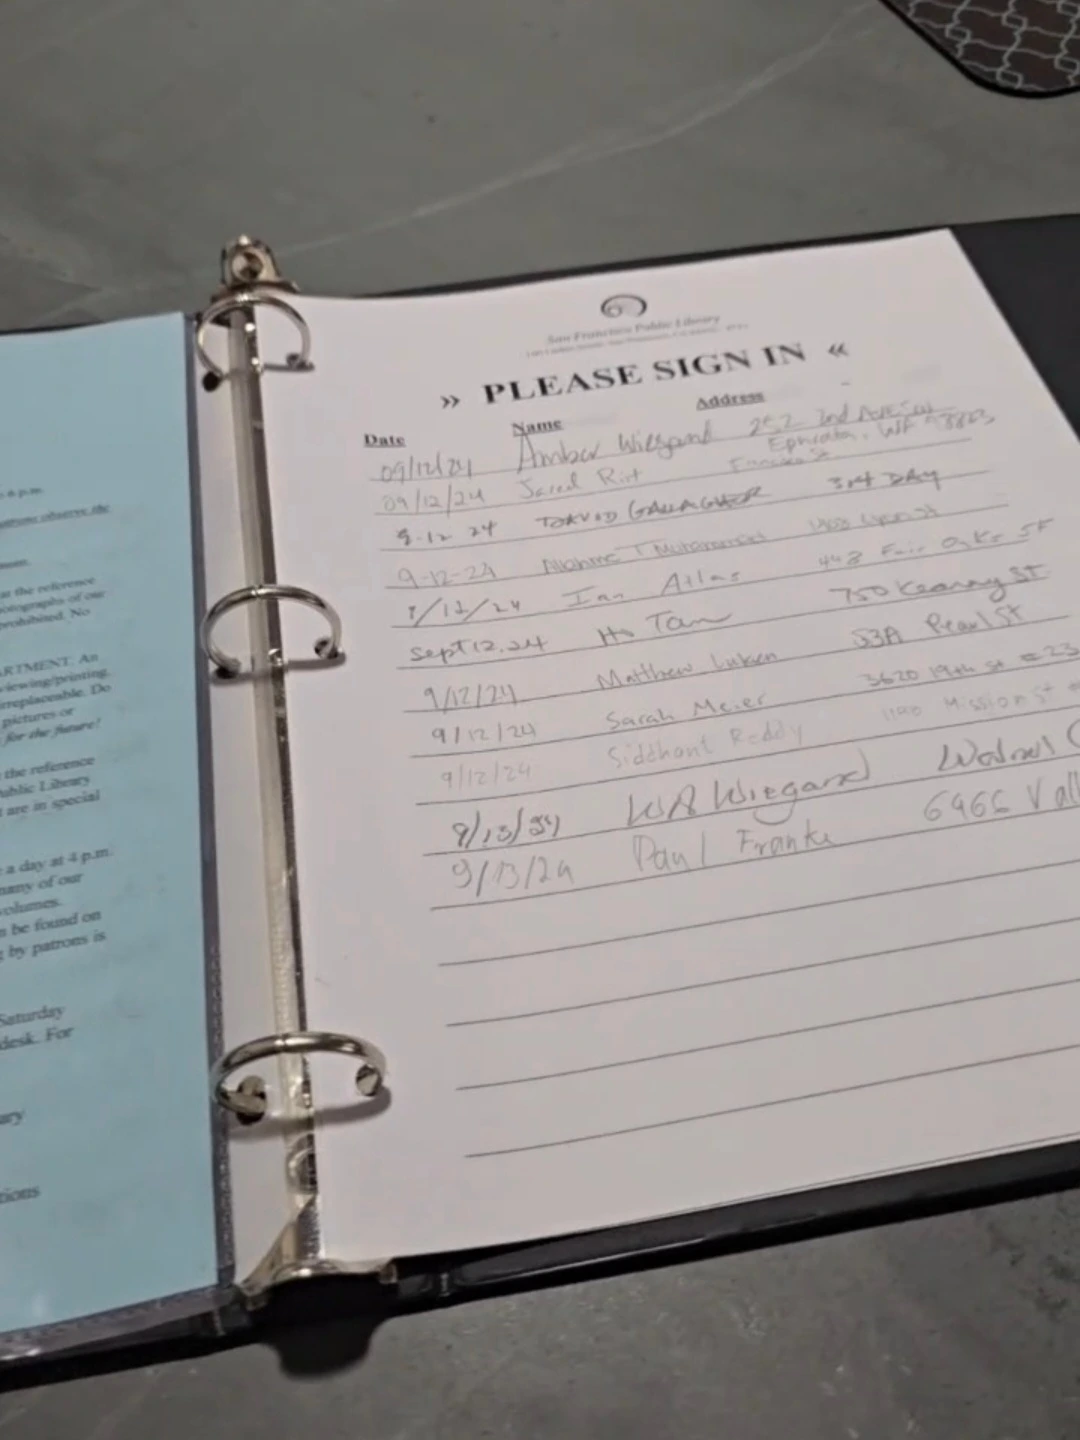 6 p.m.
observe the
at the reference
photographs of our
prohibited. No
ARTMENT. An
viewing/printing.
irreplaceable. Do
pictures or
for the future!
the reference
Public Library
are in special
a day at 4 p.m.
many of our
volumes.
be found on
by patrons is
Saturday
desk. For
San Francisco Public Library
» PLEASE SIGN IN «
Date Name Address
09/12/24 Amber Wiegand 252 2nd Ave SW
Ephrata, 98823
09/12/24 Jared Francisco St
9-12 24 DAVID GALLAGHER 3rd DAY
9-12-24 Muhammad Lyon St
9/12/24 Ian Atlas 448 Fair Oaks St
Sept 12.24 Ho Tam 750 Kearny St
9/12/24 Matthew 53A Pearl St
9/12/24 Sarah Meier 3620 19th St #23
9/12/24 Siddhant Reddy 1190 Mission St
9/13/24 Wiegand
9/13/24 Paul Franke 6466